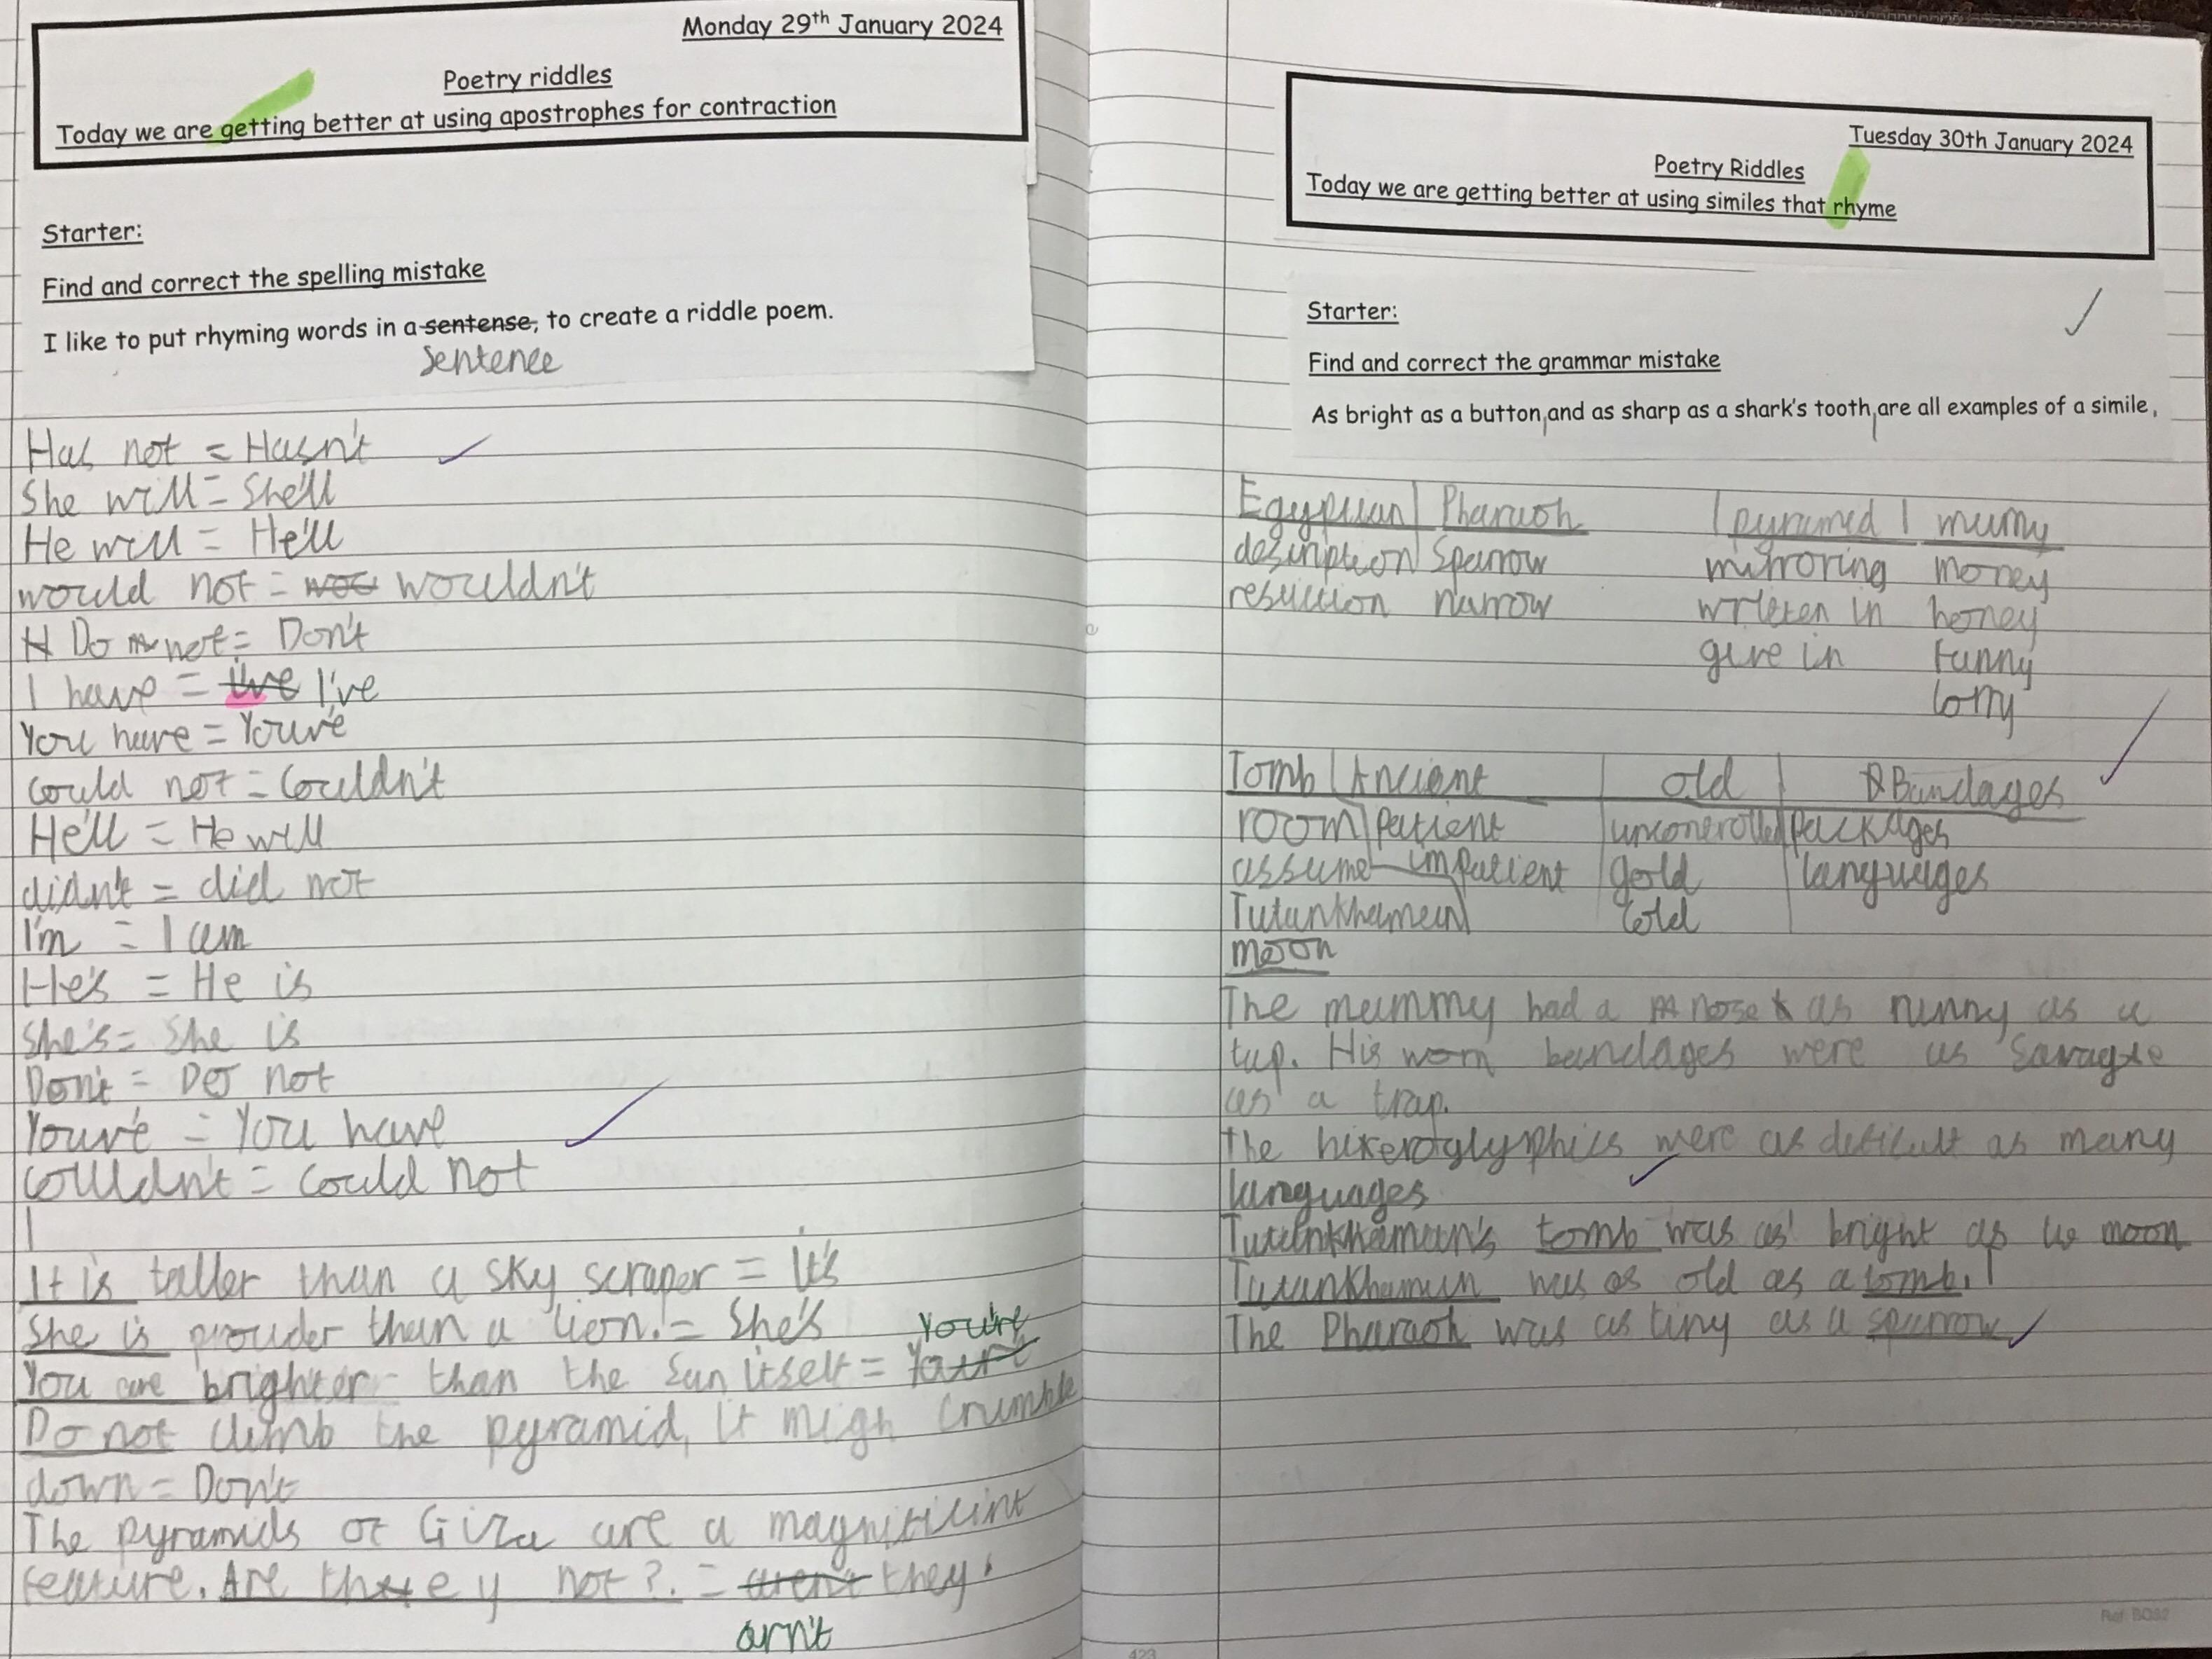 Monday 29th January 2024
Poetry riddles
Today we are getting better at using apostrophes for contraction
Starter:
Find and correct the spelling mistake
I like to put rhyming words in a sentense, to create a riddle poem.
Sentence
Has not = Hasn't
She will = She'll
He will = He'll
would not = wou wouldn't
H Do not = Don't
I have = ive I've
You have = You've
Could not = Couldn't
He'll = He will
didn't = did not
I'm = I am
He's = He is
She's = She is
Don't = Do not
You've = You have
Couldn't = Could not
It is taller than a sky scraper = It's
She is prouder than a lion. = She's
You're
You are brighter than the Sun itself =
Do not climb the pyramid, it migh crumble
down = Don't
The pyramids of Giza are a magnificint
feature. Are they not?. = aren't they
arn't
Tuesday 30th January 2024
Poetry Riddles
Today we are getting better at using similes that rhyme
Starter:
Find and correct the grammar mistake
As bright as a button, and as sharp as a shark's tooth, are all examples of a simile,
Egyptian Pharaoh pyramid mumy
description Sparrow mirroring money
written in honey
narrow give in funny
Tomb Ancient old Bandages
room patient uncontrolled packages
assume impatient gold languages
Tutankhamun cold
moon
The mummy had a nose as runny as a
tap. His worn bandages were as Savage
as a trap.
The were as deficult as many
languages.
Tutankhamun's tomb was as bright as the moon
Tutankhamun was as old as a tomb.
The Pharaoh was as tiny as a sparrow
Ref: BO32
423